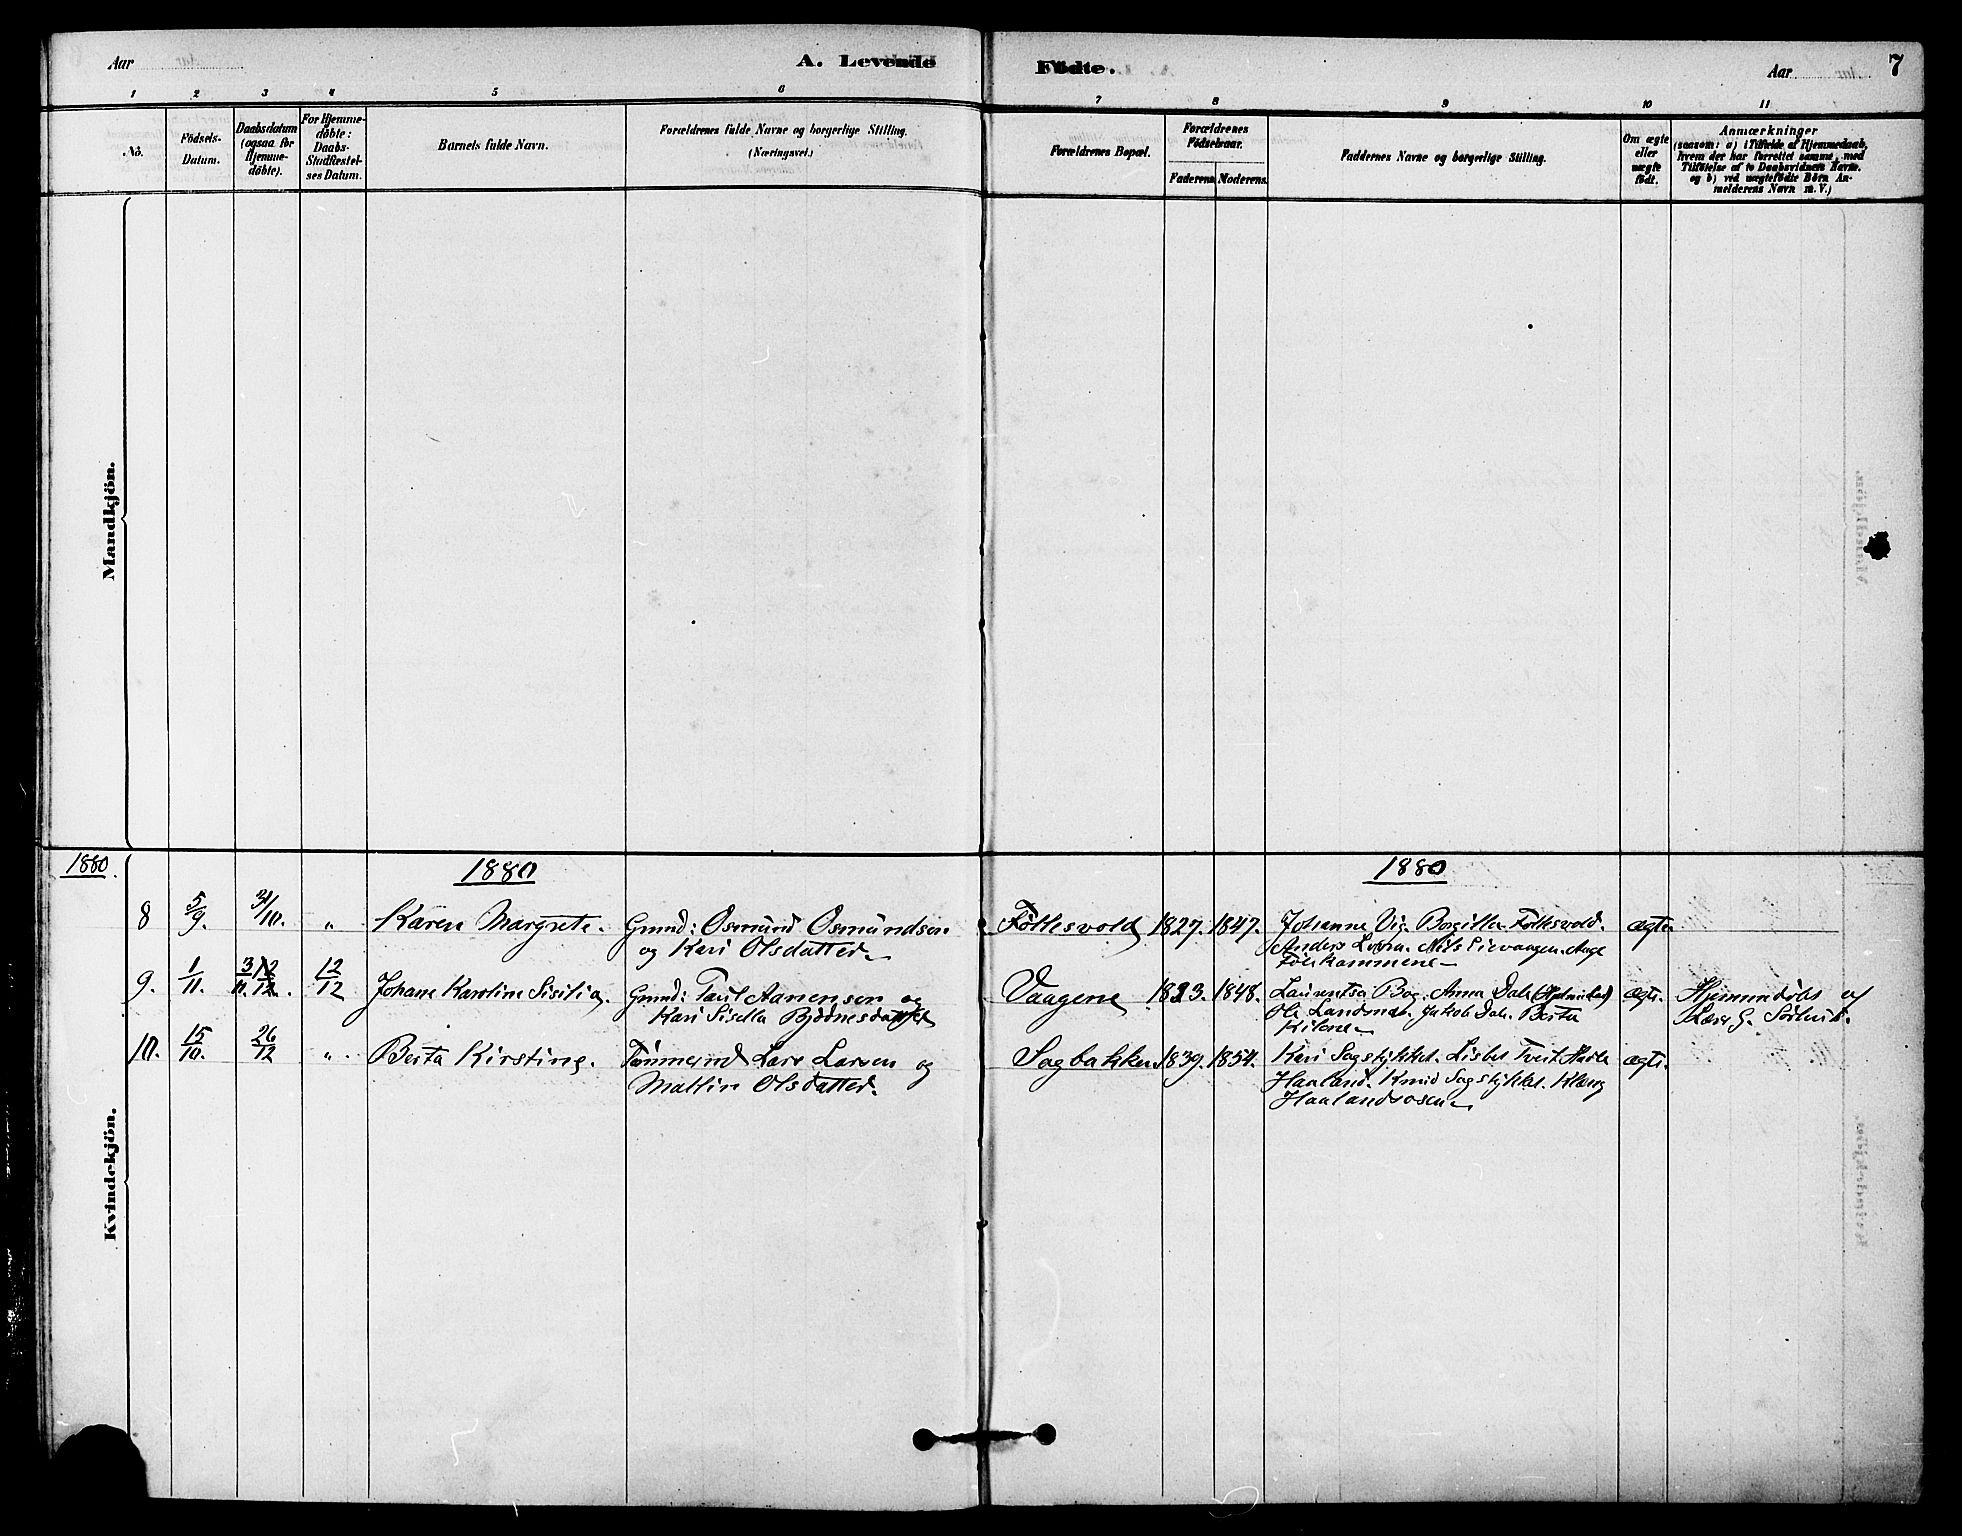 Aar
A. Levende
Födte.
Aar
7
1 2 3 4 5 6 7 8 9 10 11
No.
Födsels-
Datum.
Daabsdatum
(ogsaa for
Hjemme-
döbte).
For Hjemme-
døbte:
Daabs-
Stadfæstel-
ses Datum.
Barnets fulde Navn.
Forældrenes fulde Navne og borgerlige Stilling.
(Næringsvei.)
Forældrenes Bopæl.
Forældrenes
Födselsaar.
Faderens. Moderens.
Faddernes Navne og borgerlige Stilling.
Om ægte
eller
uægte
födt.
Anmærkninger
(saasom: a) i Tilfælde af Hjemmedaab,
hvem der har forrettet samme, med
Tilföielse af to Daabsvidners Navne.
og b) ved uægtefödte Börn An-
melderens Navn m. V.)
Mandkjön.
Kvindekjön.
1880.
1880
1880
8 5/9. 31/10. " Karen Margrete. Grmd: Osmund Osmundsen
og Kari Olsdatter
1827. 1847. Johanne Vig. Borgilla
Anders
ægte.
9. 1/11. 12/12 Johane Karoline Sisilia. Grmd: Paul Aanensen og
Kari Sisella
Vaagene 1823. 1848. Anna Dale
Ole Jakob Dale. Berta
Kilene
ægte. Hjemmedöbt af
10. 15/10. 26/12 " Berta Kirstine. Tömmermd Lars Larsen og
Mallin Olsdatter.
Sagbakken 1839. 1854. Kari Sagstykket. Lisbet Tveit.
Haaland. Knud Sagstykket.
Haalandsosen
ægte.